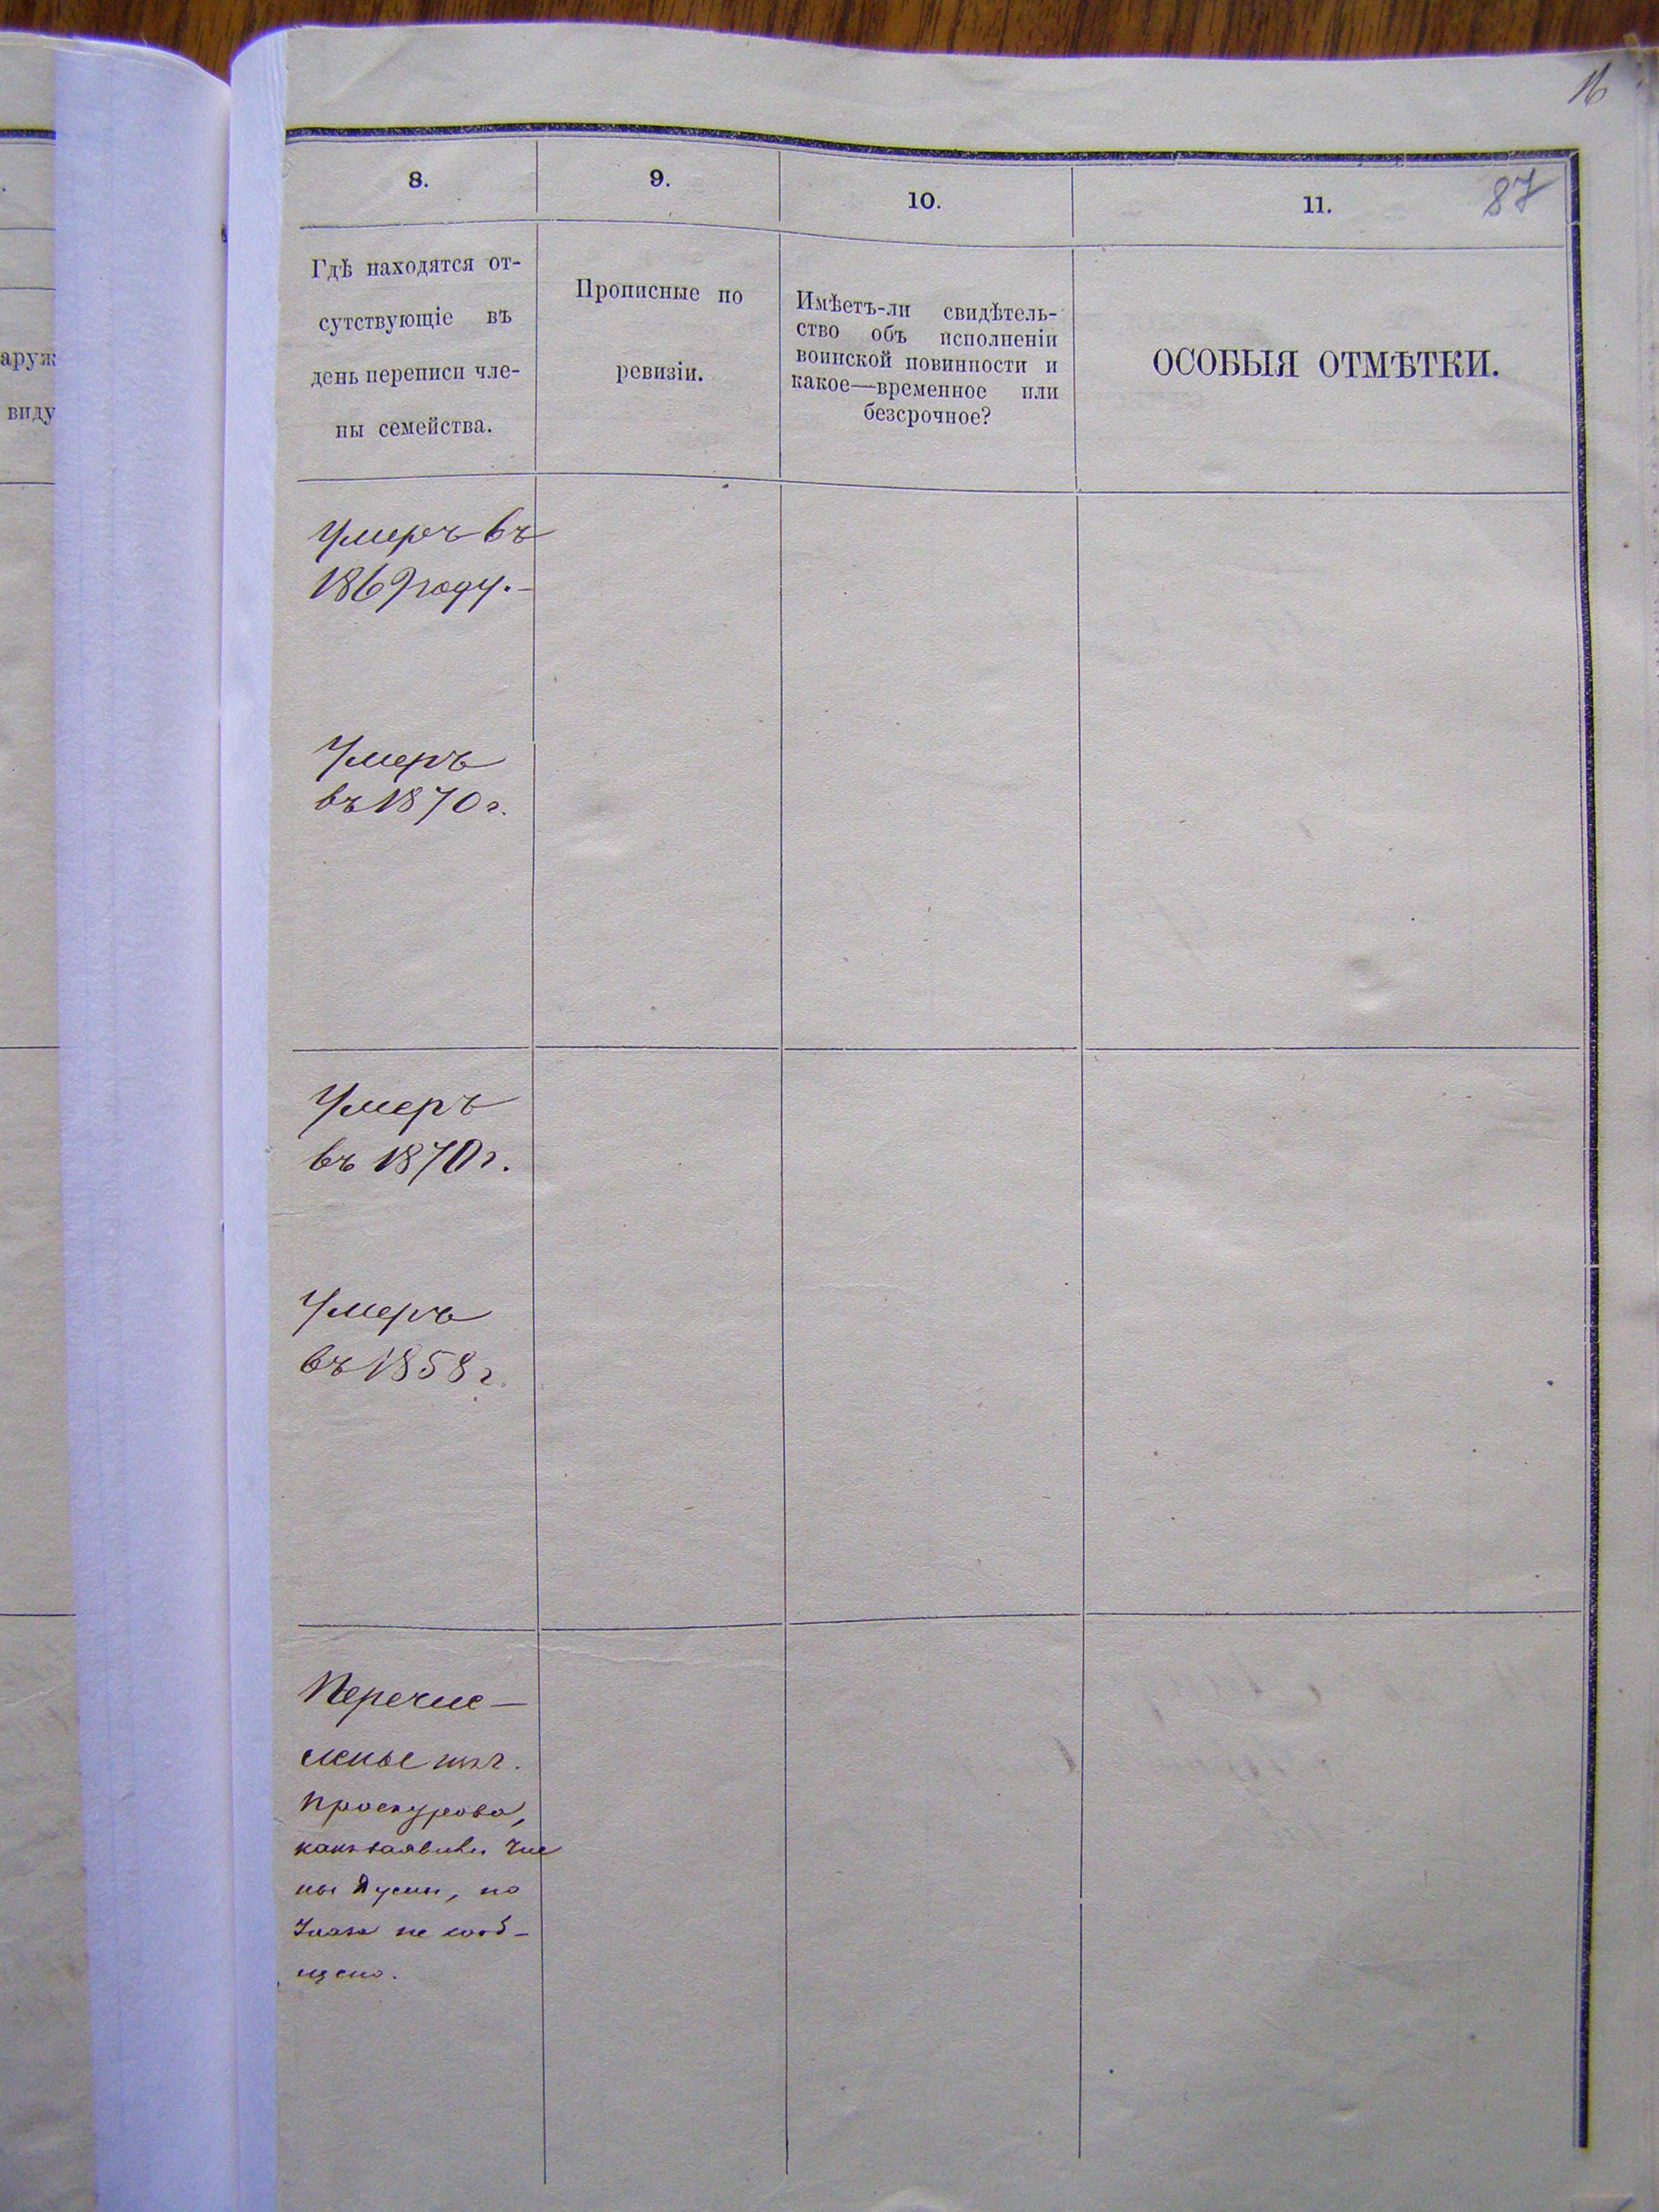 16
87
8.
9.
10.
11.
Гдѣ находятся от-
сутствующіе въ
день переписи чле-
ны семейства.
Прописные по
ревизіи.
Имѣетъ-ли свидѣтель-
ство объ исполненіи
воинской повинности и
какое—временное или
безсрочное?
ОСОБЫЯ ОТМѢТКИ.
аруж
виду
Умеръ въ
1869 году.-
Умеръ
въ 1870 г.
Умеръ
въ 1870 г.
Умеръ
въ 1858 г.
Перечис-
лены
Проскурова,
но
не сооб-
щено.